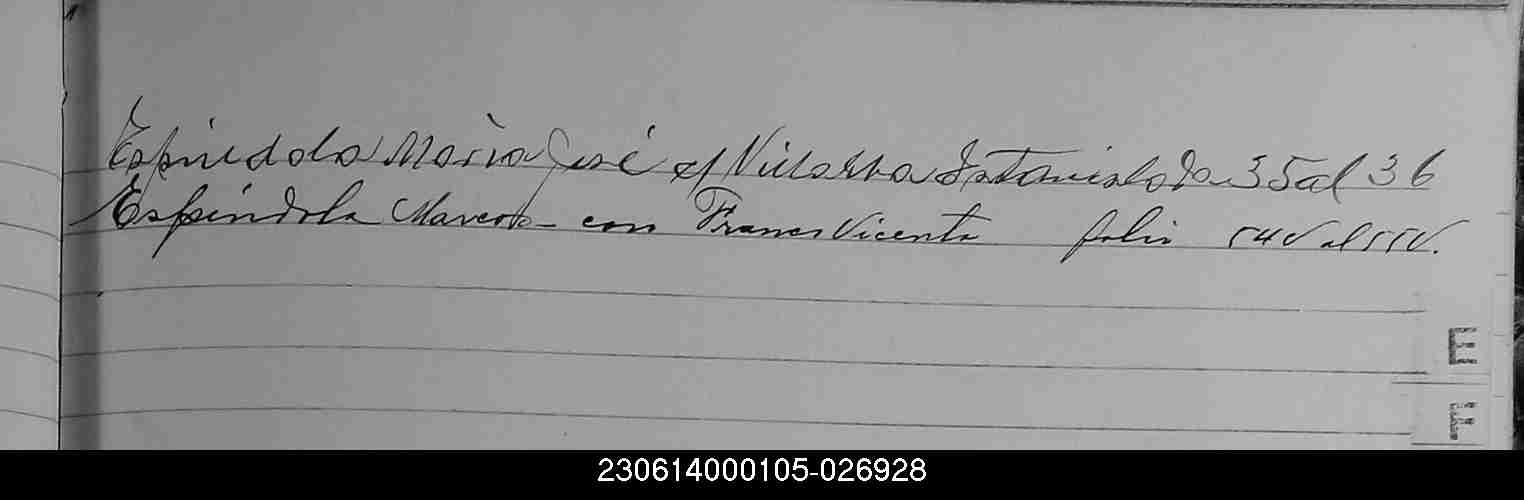 Espindola Maria José c/ Villalba Estanislada 35 al 36
Espíndola Marcos - con Franco Vicenta folio 54V al 55V.
E
F
230614000105-026928